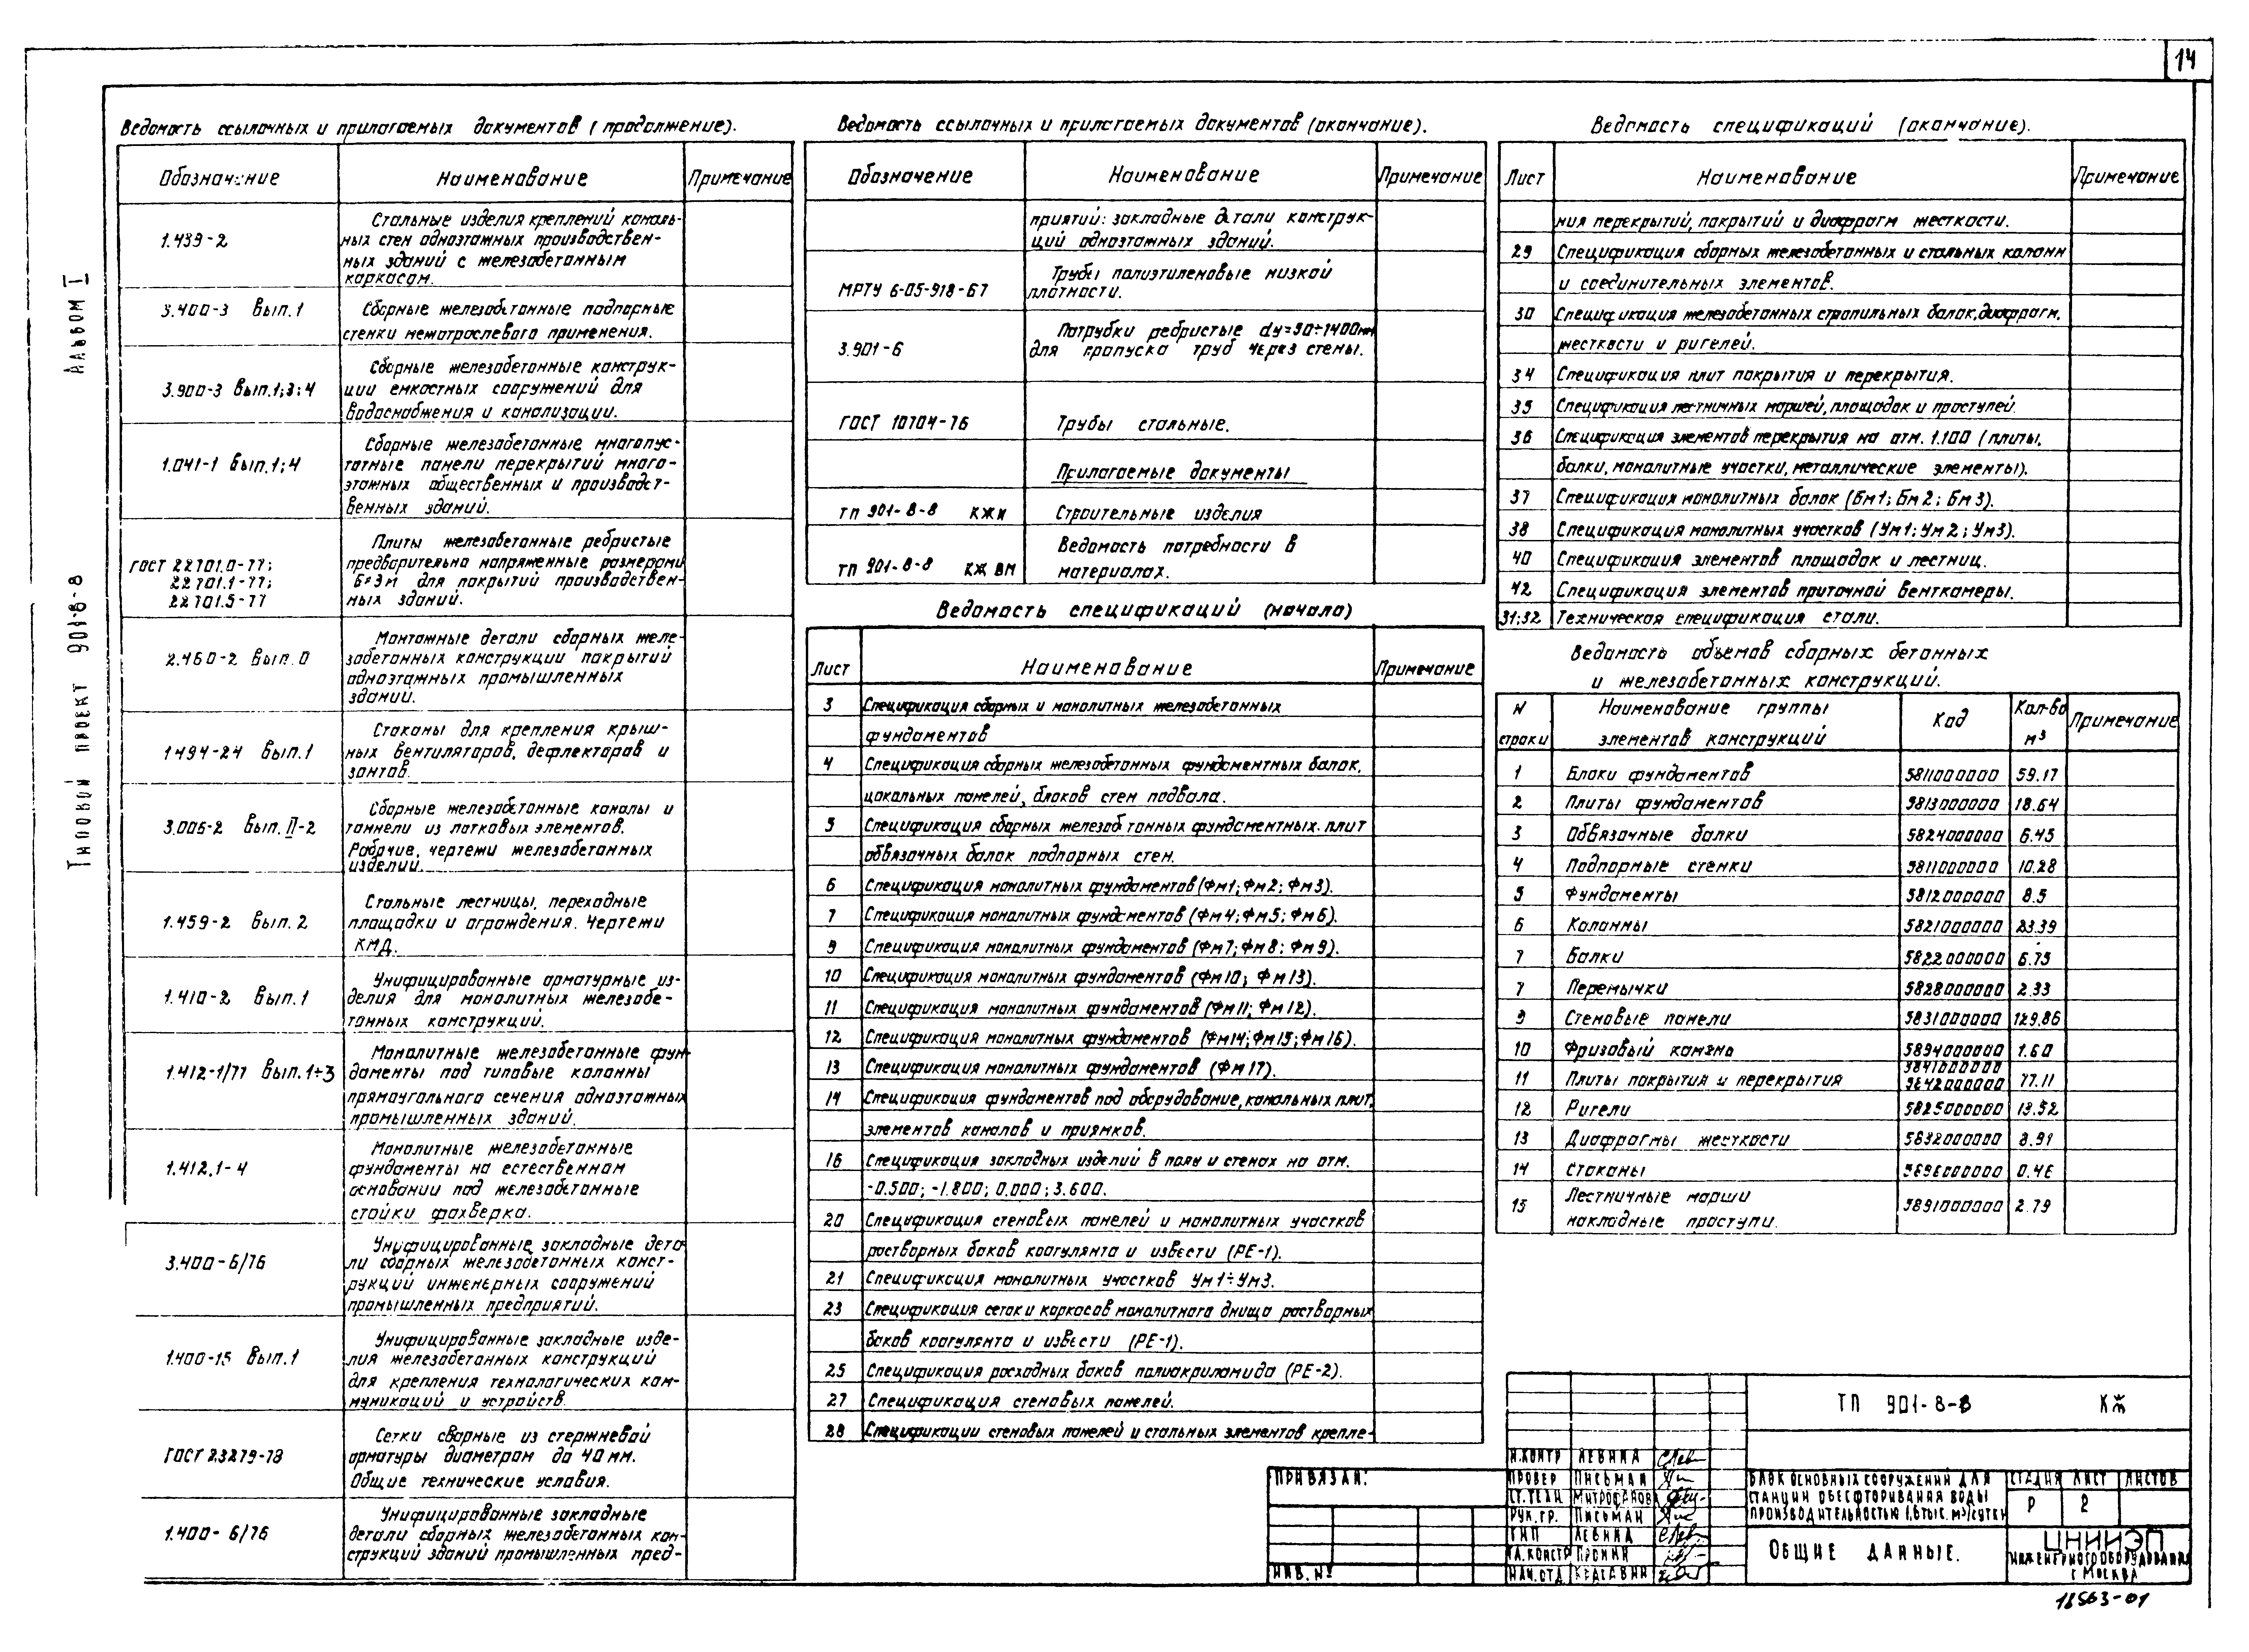 14
Альбом I
Типовой проект 901-8-8
Ведомость ссылочных и прилагаемых документов (продолжение).
Обозначение Наименование Примечание
1.439-2 Стальные изделия креплений каналь-
ных стен одноэтажных производствен-
ных зданий с железобетонным
каркасом.
3.400-3 Вып.1 Сборные железобетонные подпорные
стенки межотраслевого применения.
3.900-3 Вып.1;3;4 Сборные железобетонные конструк-
ции емкостных сооружений для
водоснабжения и канализации.
1.041-1 Вып.1;4 Сборные железобетонные многопус-
тотные панели перекрытий много-
этажных общественных и производст-
венных зданий.
ГОСТ 22701.0-77; Плиты железобетонные ребристые
22701.1-77; предварительно напряженные размерами
22701.5-77 6×3м для покрытий производствен-
ных зданий.
2.460-2 Вып.0 Монтажные детали сборных желе-
забетонных конструкции покрытий
одноэтажных промышленных
зданий.
1.494-24 Вып.1 Стаканы для крепления крыш-
ных вентиляторов, дефлекторов и
зонтов.
3.006-2 Вып.II-2 Сборные железобетонные каналы и
тоннели из лотковых элементов.
Рабочие чертежи железобетонных
изделий.
1.459-2 Вып.2 Стальные лестницы, переходные
площадки и ограждения. Чертежи
КМД.
1.410-2 Вып.1 Унифицированные арматурные из-
делия для монолитных железобе-
тонных конструкций.
1.412-1/77 Вып.1÷3 Монолитные железобетонные фун-
даменты под типовые колонны
прямоугольного сечения одноэтажных
промышленных зданий.
1.412.1-4 Монолитные железобетонные
фундаменты на естественном
основании под железобетонные
стойки фахверка.
3.400-6/76 Унифицированные закладные дета-
ли сборных железобетонных конст-
рукций инженерных сооружений
промышленных предприятий.
1.400-15 Вып.1 Унифицированные закладные изде-
лия железобетонных конструкций
для крепления технологических ком-
муникаций и устройств.
ГОСТ 23279-78 Сетки сварные из стержневой
арматуры диаметром до 40 мм.
Общие технические условия.
1.400-6/76 Унифицированные закладные
детали сборных железобетонных кон-
струкций зданий промышленных пред-
Ведомость ссылочных и прилагаемых документов (окончание).
Обозначение Наименование Примечание
приятий: закладные детали конструк-
ций одноэтажных зданий.
МРТУ 6-05-918-67 Трубы полиэтиленовые низкой
плотности.
3.901-6 Патрубки ребристые dy=50÷1400мм
для пропуска труб через стены.
ГОСТ 10704-76 Трубы стальные.
Прилагаемые документы
ТП 901-8-8 КЖИ Строительные изделия
ТП 901-8-8 КЖ ВМ Ведомость потребности в
материалах.
Ведомость спецификаций (начало)
Лист Наименование Примечание
3 Спецификация сборных и монолитных железобетонных
фундаментов
4 Спецификация сборных железобетонных фундаментных балок,
цокольных панелей, блоков стен подвала.
5 Спецификация сборных железобетонных фундаментных плит
обвязочных балок подпорных стен.
6 Спецификация монолитных фундаментов (Фм1; Фм2; Фм3).
7 Спецификация монолитных фундаментов (Фм4; Фм5; Фм6).
9 Спецификация монолитных фундаментов (Фм7; Фм8; Фм9).
10 Спецификация монолитных фундаментов (Фм10; Фм13).
11 Спецификация монолитных фундаментов (Фм11; Фм12).
12 Спецификация монолитных фундаментов (Фм14; Фм15; Фм16).
13 Спецификация монолитных фундаментов (Фм17).
14 Спецификация фундаментов под оборудование, канальных плит,
элементов каналов и приямков.
16 Спецификация закладных изделий в полу и стенах на отм.
-0.500; -1.800; 0.000; 3.600.
20 Спецификация стеновых панелей и монолитных участков
растворных баков коагулянта и извести (РЕ-1).
21 Спецификация монолитных участков Ум1÷Ум3.
23 Спецификация сеток и каркасов монолитного днища растворных
баков коагулянта и извести (РЕ-1).
25 Спецификация расходных баков полиакриламида (РЕ-2).
27 Спецификация стеновых панелей.
28 Спецификации стеновых панелей и стальных элементов крепле-
Ведомость спецификаций (окончание).
Лист Наименование Примечание
ния перекрытий, покрытий и диафрагм жесткости.
29 Спецификация сборных железобетонных и стальных колонн
и соединительных элементов.
30 Спецификация железобетонных стропильных балок, диафрагм,
жесткости и ригелей.
34 Спецификация плит покрытия и перекрытия.
35 Спецификация лестничных маршей, площадок и проступей.
36 Спецификация элементов перекрытия на отм. 1.100 (плиты,
балки, монолитные участки, металлические элементы).
37 Спецификация монолитных балок (Бм1; Бм2; Бм3).
38 Спецификация монолитных участков (Ум1; Ум2; Ум3).
40 Спецификация элементов площадок и лестниц.
42 Спецификация элементов приточной венткамеры.
31;32 Техническая спецификация стали.
Ведомость объемов сборных бетонных
и железобетонных конструкций.
N строки Наименование группы элементов конструкций Код Кол-во м³ Примечание
1 Блоки фундаментов 5811000000 59.17
2 Плиты фундаментов 5813000000 18.64
3 Обвязочные балки 5824000000 6.45
4 Подпорные стенки 5811000000 10.28
5 Фундаменты 5812000000 8.5
6 Колонны 5821000000 23.39
7 Балки 5822000000 6.75
7 Перемычки 5828000000 2.33
9 Стеновые панели 5831000000 129.86
10 Фризовый камень 5894000000 1.60
11 Плиты покрытия и перекрытия 5841000000 5842000000 77.11
12 Ригели 5825000000 13.52
13 Диафрагмы жесткости 5832000000 8.91
14 Стаканы 5896000000 0.46
15 Лестничные марши
накладные проступи. 5891000000 2.79
Привязан:
Инв. №
Н.контр Левина
Провер Письман
Ст.техн Митрофанова
Рук.гр. Письман
ГИП Левина
Гл.констр Пронин
Нач.отд Красавин
ТП 901-8-8 КЖ
Блок основных сооружений для
станции обесфторивания воды
производительностью 1,6 тыс. м3/сутки
Стадия Лист Листов
Р 2
Общие данные.
ЦНИИЭП
инженерного оборудования
г. Москва
16563-01